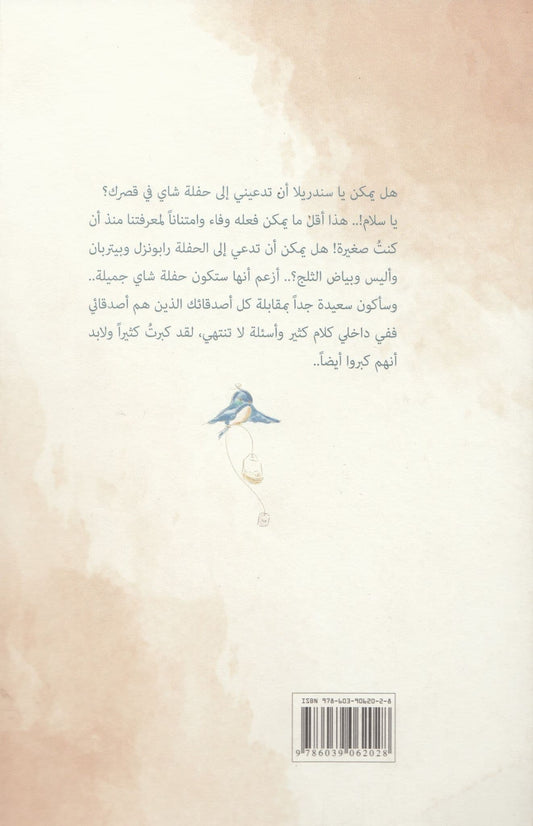 هل يمكن يا سندريلا أن تدعيني إلى حفلة شاي في قصرك؟
يا سلام!.. هذا أقلُ ما يمكن فعله وفاء وامتناناً لمعرفتنا منذ أن
كنتُ صغيرة! هل يمكن أن تدعي إلى الحفلة رابونزل وبيتربان
وأليس وبياض الثلج؟.. أزعم أنها ستكون حفلة شاي جميلة..
وسأكون سعيدة جداً بمقابلة كل أصدقائك الذين هم أصدقائي
ففي داخلي كلام كثير وأسئلة لا تنتهي، لقد كبرتُ كثيراً ولابد
أنهم كبروا أيضاً..
ISBN 978-603-90620-2-8
9 786039 062028